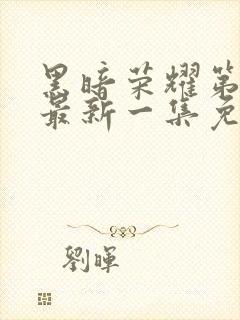 黑暗荣耀第
最新一集免
劉暉